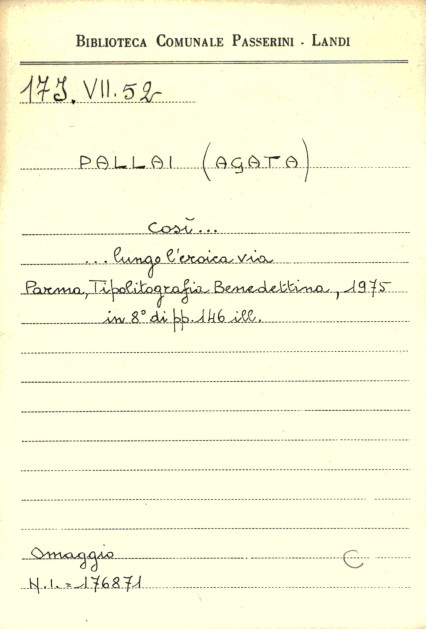 BIBLIOTECA COMUNALE PASSERINI - LANDI
173. VII. 52
PALLAI (AGATA)
Così...
...lungo l'eroica via
Parma, Tipolitografia Benedettina, 1975
in 8° di pp. 146 ill.
Omaggio
C
N.I. = 176871